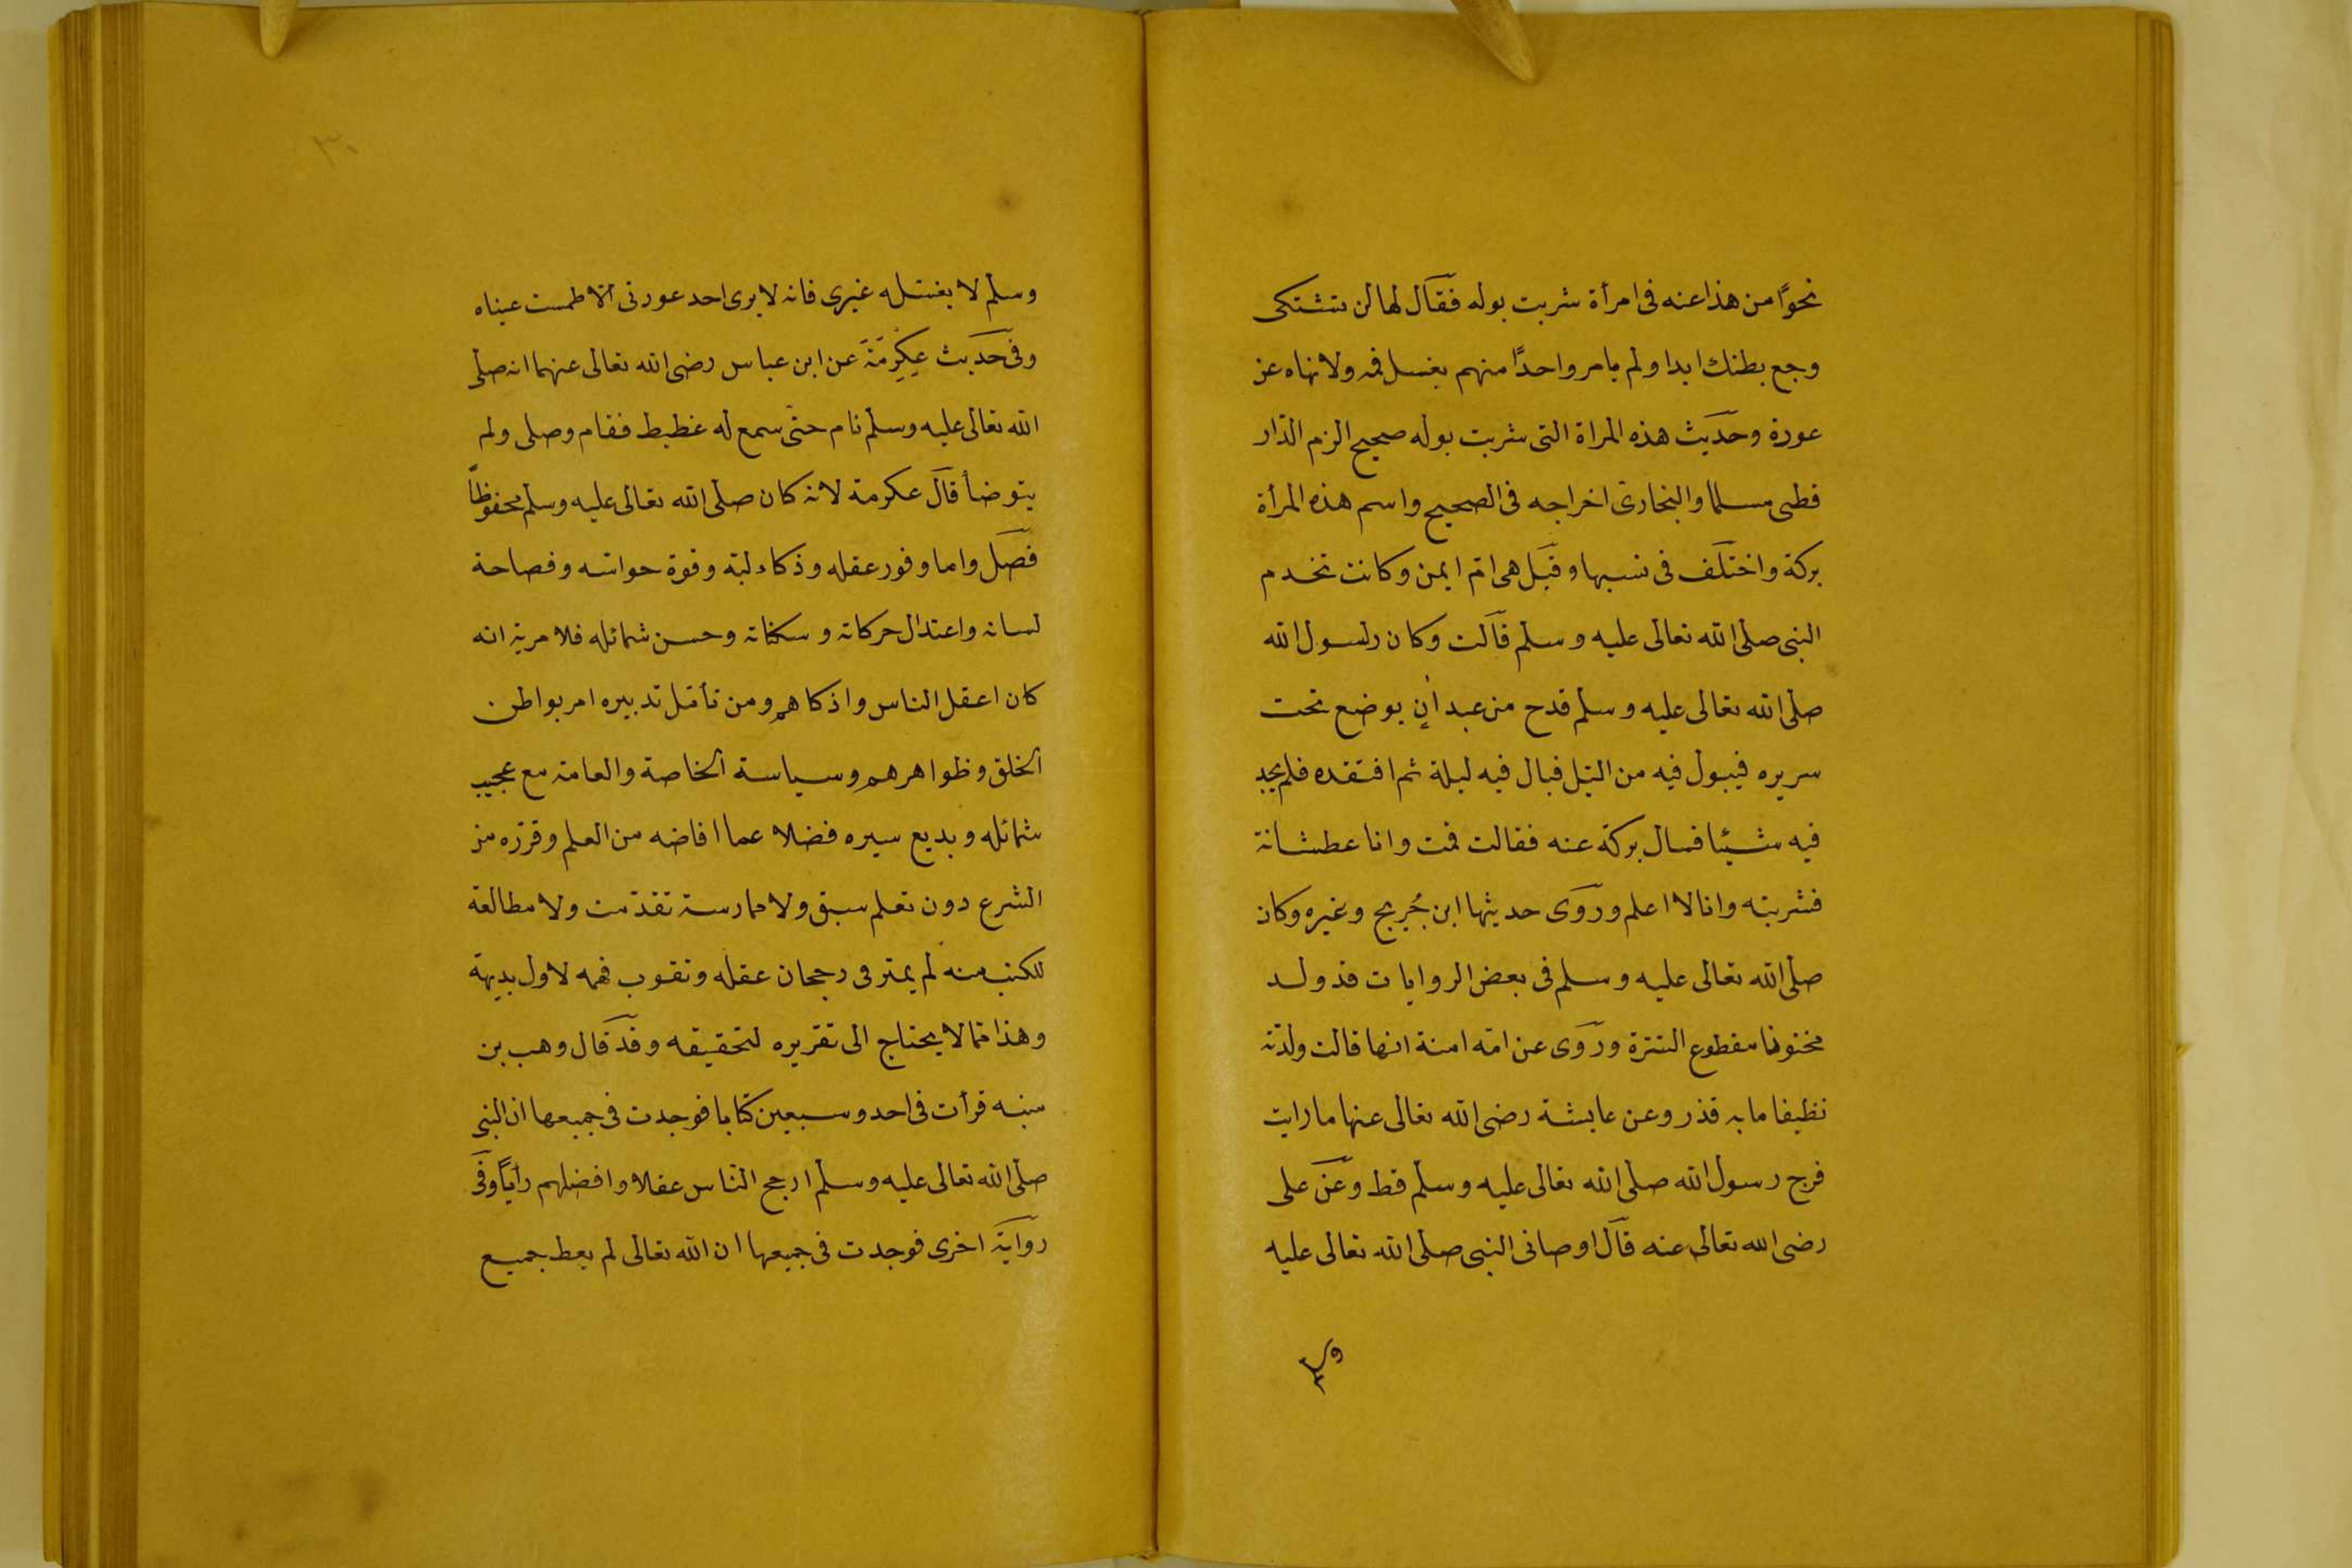 نحوًا من هذا عنه فى امرأة شربت بوله فقال لها لن تشتكى
وجع بطنك ابدا ولم يامر واحدًا منهم بغسل فمه ولا نهاه عن
عودة وحديث هذه المراة التى شربت بوله صحيح الزم الدار
قطنى مسلما والبخارى اخراجه فى الصحيح واسم هذه المرأة
بركة واختلف فى نسبها وقيل هى ام ايمن وكانت تخدم
النبى صلى الله تعالى عليه وسلم قالت وكان رسول الله
صلى الله تعالى عليه وسلم قدح من عيدان يوضع تحت
سريره فيبول فيه من الليل فبال فيه ليلة ثم افتقده فلم يجد
فيه شيئا فسال بركة عنه فقالت قمت وانا عطشانة
فشربته وانا لا اعلم وروى حديثها ابن جُريج وغيره وكان
صلى الله تعالى عليه وسلم فى بعض الروايات قد ولد
مختونا مقطوع السرة وروى عن امه امنة انها قالت ولدته
نظيفا مابه قذر وعن عايشة رضى الله تعالى عنها ما رايت
فرج رسول الله صلى الله تعالى عليه وسلم قط وعن على
رضى الله تعالى عنه قال اوصانى النبى صلى الله تعالى عليه
وسلم
٣٠
وسلم لا يغسله غيرى فانه لا يرى احد عورتى الا طمست عيناه
وفى حديث عِكرِمَةَ عن ابن عباس رضى الله تعالى عنهما انه صلى
الله تعالى عليه وسلم نام حتى سمع له غطيط فقام وصلى ولم
يتوضأ قال عكرمة لانه كان صلى الله تعالى عليه وسلم محفوظاً
فصل واما وفور عقله وذكاء لبه وقوة حواسه وفصاحة
لسانه واعتدال حركاته وسكناته وحسن شمائله فلا مرية انه
كان اعقل الناس واذكاهم ومن تأمل تدبيره امر بواطن
الخلق وظواهرهم وسياسة الخاصة والعامة مع عجيب
شمائله وبديع سيره فضلا عما افاضه من العلم وقرره من
الشرع دون تعلم سبق ولا ممارسة تقدمت ولا مطالعة
للكتب منه لم يمتر فى رجحان عقله وثقوب فهمه لاول بديهة
وهذا مما لا يحتاج الى تقريره لتحقيقه وقد قال وهب بن
منبه قرأت فى احد وسبعين كتابا فوجدت فى جميعها ان النبى
صلى الله تعالى عليه وسلم ارجح الناس عقلا وافضلهم رأيًا وفى
رواية اخرى فوجدت فى جميعها ان الله تعالى لم يعط جميع